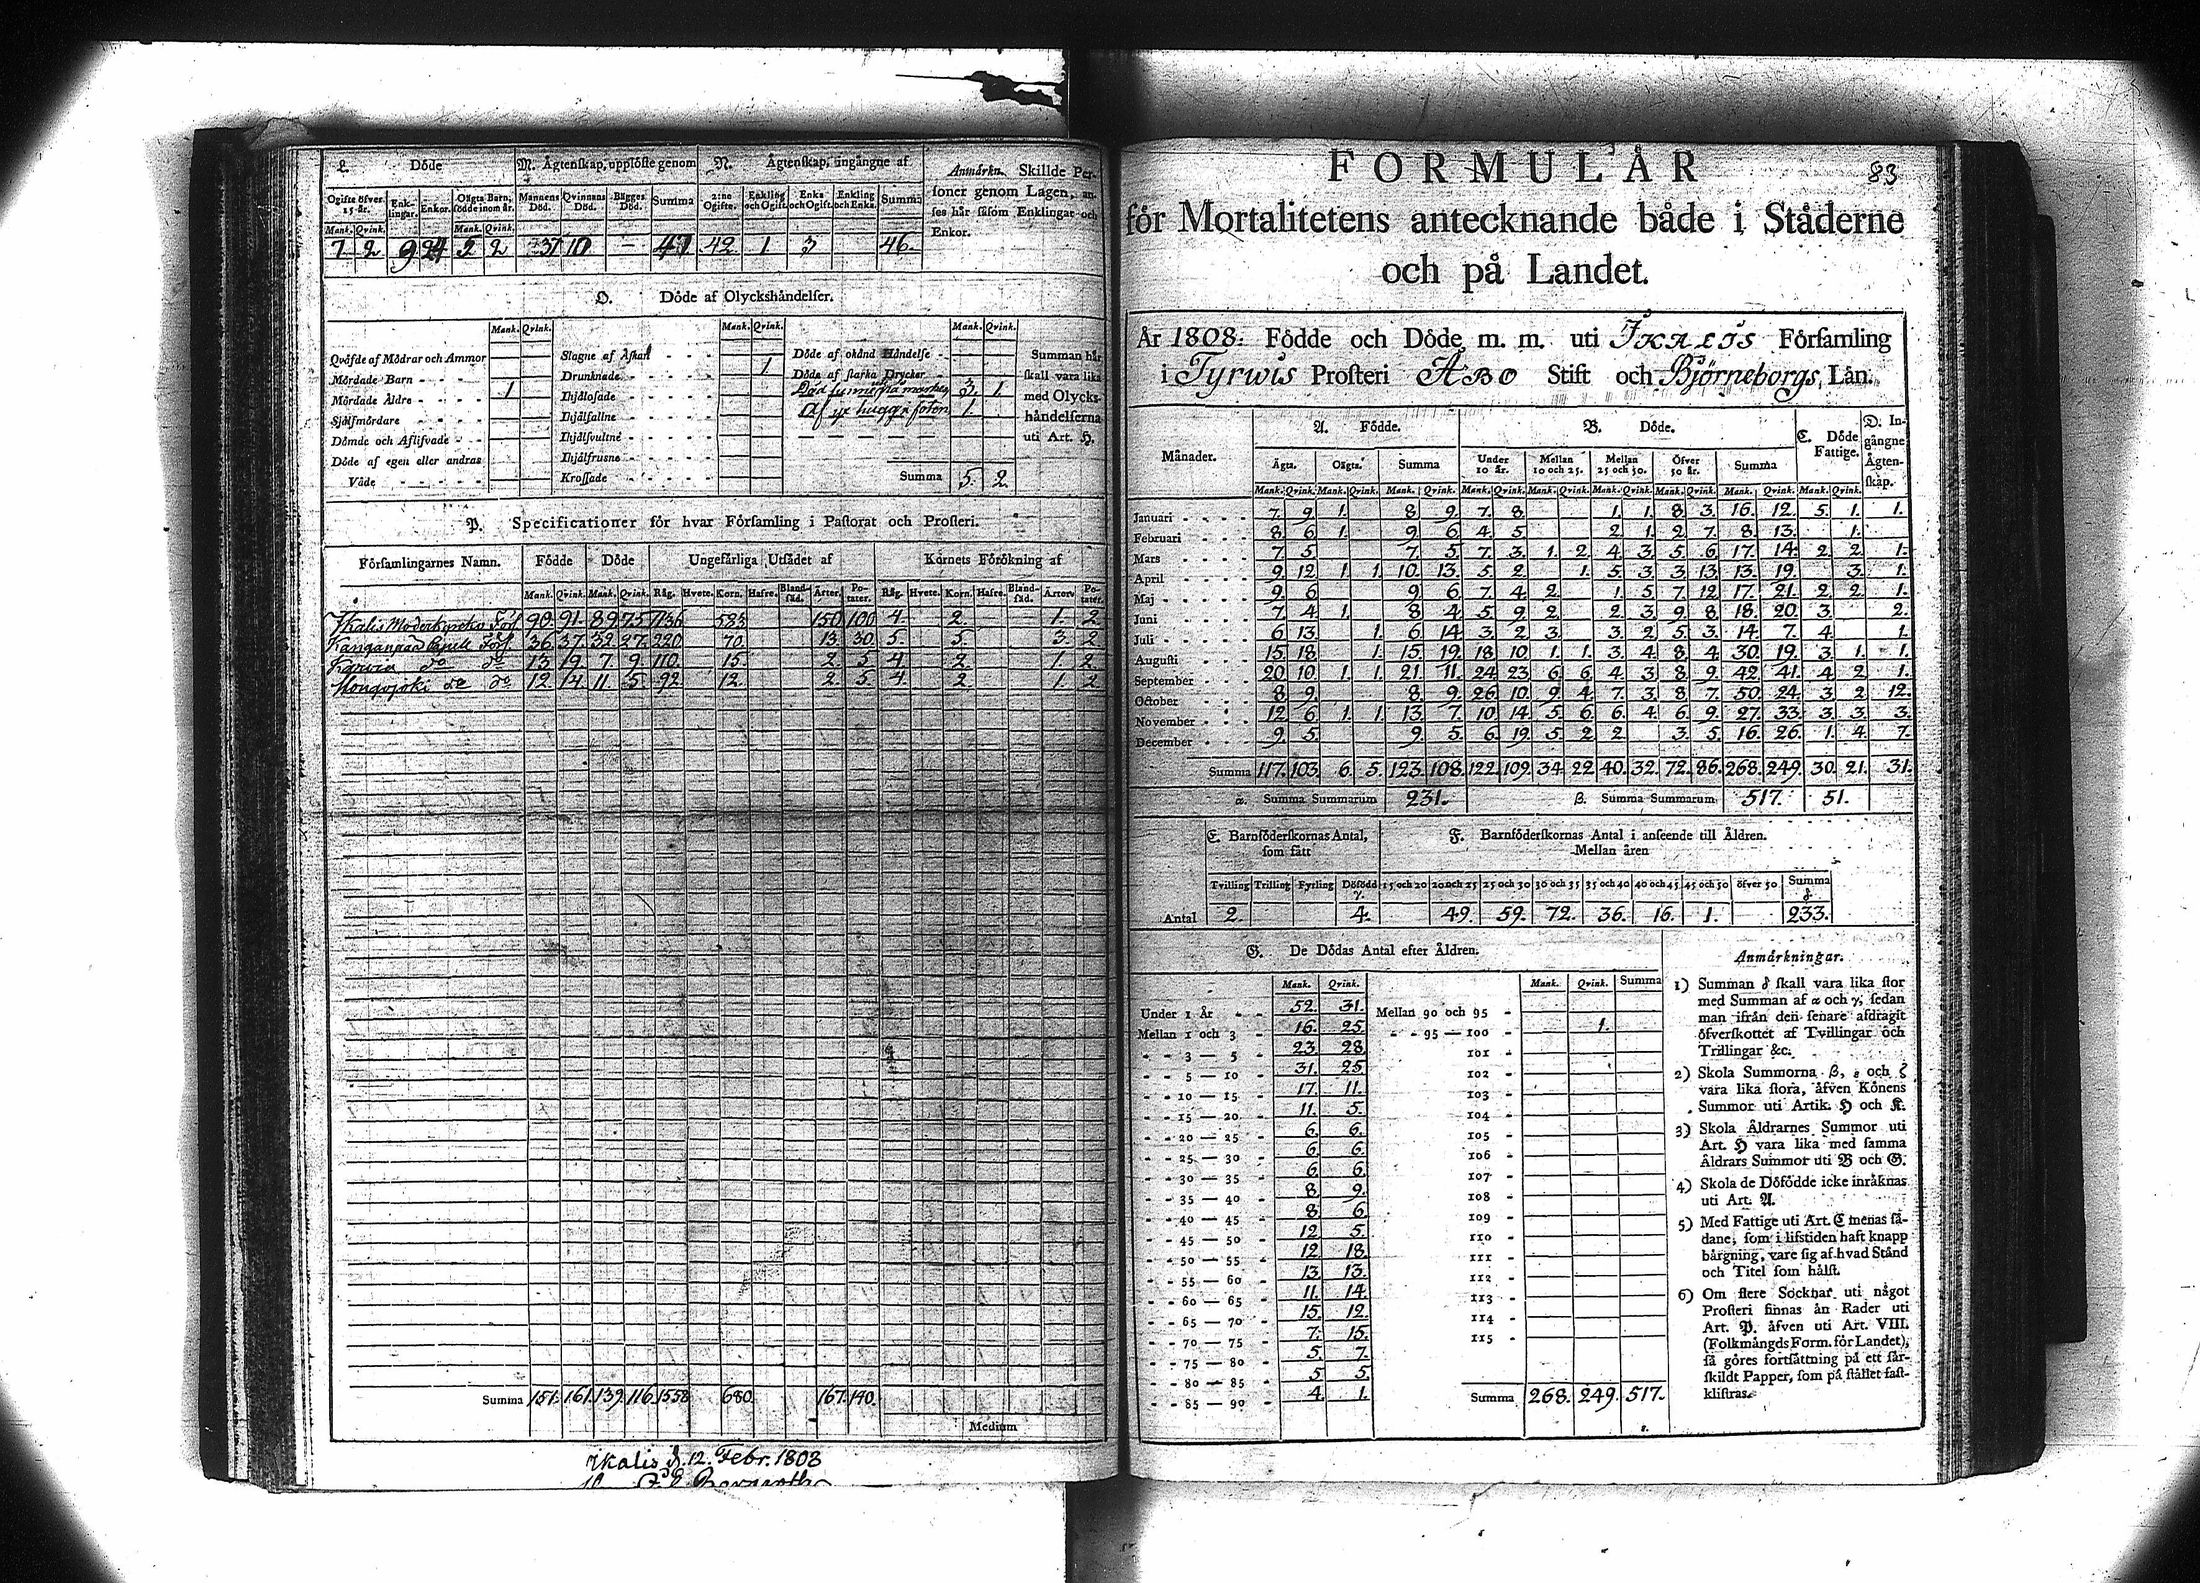 L. Döde
M. Ägtenskap, upplöste genom
N. Ägtenskap, ingångne af
Ogifte öfver 15 år.
Enklingar.
Enkor.
Oägta Barn, födde inom år.
Mannens Död.
Qvinnans Död.
Bägges Död.
Summa
2:ne Ogifte.
Enkling och Ogift.
Enka och Ogift.
Enkling och Enka.
Summa
Mank. Qvink. Mank. Qvink.
7 2 9 24 5 2 37 10 — 47 42 1 3 46.
Anmärkn. Skillde Per-
soner genom Lagen, an-
ses här såsom Enklingar och
Enkor.
O. Döde af Olyckshändelser.
Mank. Qvink. Mank. Qvink. Mank. Qvink.
Qväfde af Mödrar och Ammor
Mördade Barn - - - 1
Mördade Äldre - - -
Sjelfmördare - - - -
Dömde och Aflifvade - - -
Döde af egen eller andras
Våde - - - - -
Slagne af Åskan - - -
Drunknade - - - - 1
Ihjälosade - - - -
Ihjälfallne - - - -
Ihjälsvultne - - - -
Ihjälfrusne - - - -
Krossade - - - - -
Döde af okänd Händelse -
Döde af starka Drycker -
3. 1.
Af yx hugg i foten 1.
Summa 5. 2.
Summan här
skall vara lika
med Olycks-
händelserna
uti Art. H.
P. Specificationer för hvar Församling i Pastorat och Prosteri.
Församlingarnes Namn. Födde Döde Ungefärliga Utsädet af Kornets Förökning af
Mank. Qvink. Mank. Qvink. Råg. Hvete. Korn. Hafre. Bland-säd. Ärter. Po-tater. Råg. Hvete. Korn. Hafre. Bland-säd. Ärter. Po-tater.
Ikalis Moderkyrko Förs. 90. 91. 89. 75. 1136 583 150 100 4. 2. 1. 2
Kanganpää Capell Förs. 36. 37. 32. 27. 220 70. 13. 30 5 5. 3. 2
Karvia do do 13. 19. 7. 9. 110. 15. 2. 5 4. 2. 1. 2.
do do 12. 14. 11. 5. 92. 12. 2. 5 4. 2. 1. 2
Summa 151. 161. 139. 116. 1558 680. 167. 140.
Medium
Ikalis d. 12. Febr. 1808
FORMULÄR
83
för Mortalitetens antecknande både i Städerne
och på Landet.
År 1808. Födde och Döde m. m. uti IKALIS Församling
i Tyrwis Prosteri ÅBO Stift och Björneborgs Län.
Månader.
A. Födde.
B. Döde.
C. Döde Fattige.
D. In-gångne Ägten-skap.
Ägta. Oägta. Summa Under 10 år. Mellan 10 och 25. Mellan 25 och 50. Öfver 50 år. Summa
Mank. Qvink. Mank. Qvink. Mank. Qvink. Mank. Qvink. Mank. Qvink. Mank. Qvink. Mank. Qvink. Mank. Qvink. Mank. Qvink.
Januari - - - - 7. 9. 1. 8 9. 7. 8. 1. 1. 8 3. 16. 12. 5. 1. 1.
Februari - - - 8. 6. 1. 9. 6. 4. 5. 2 1. 2 7. 8. 13. 1.
Mars - - - - 7. 5. 7. 5. 7. 3. 1. 2. 4. 3. 5. 6. 17. 14. 2. 2. 1.
April - - - - 9. 12. 1. 1. 10. 13. 5. 2. 1. 5. 3. 3. 13. 13. 19. 3. 1.
Maj - - - - 9. 6. 9. 6. 7. 4. 2. 1. 5. 7. 12. 17. 21. 2. 2. 1.
Juni - - - - 7. 4. 1. 8 4. 5. 9. 2 2. 3. 9. 8. 18. 20. 3. 2.
Juli - - - - 6. 13. 1. 6. 14. 3. 2 3. 3. 2. 5. 3. 14. 7. 4. 1.
Augusti - - - 15. 18. 1. 15. 19. 18 10. 1. 1. 3. 4. 8. 4. 30. 19. 3. 1. 1.
September - - - 20. 10. 1. 1. 21. 11. 24. 23. 6. 6. 4. 3. 8. 9. 42. 41. 4. 2. 1.
October - - - 8. 9. 8. 9. 26. 10. 9. 4. 7. 3. 8. 7. 50. 24. 3. 2. 12.
November - - - 12. 6. 1. 1. 13. 7. 10. 14. 5. 6. 6. 4. 6. 9. 27. 33. 3. 3. 3.
December - - - 9. 5. 9. 5. 6. 19. 5. 2. 2. 3. 5. 16. 26. 1. 4. 7.
Summa 117. 103. 6. 5. 123. 108. 122. 109. 34. 22. 40. 32. 72. 86. 268. 249. 30. 21. 31.
α. Summa Summarum 231. β. Summa Summarum 517. 51.
E. Barnföderskornas Antal,
som fått
F. Barnföderskornas Antal i anseende till Åldren.
Mellan åren
Tvilling Trilling Fyrling Döfödd γ. 15 och 20 20 och 25 25 och 30 30 och 35 35 och 40 40 och 45 45 och 50 öfver 50 Summa δ
Antal 2. 4. 49. 59. 72. 36. 16. 1. 233.
G. De Dödas Antal efter Åldren.
Mank. Qvink. Mank. Qvink. Summa
Under 1 År - - 52. 31.
Mellan 1 och 3 - 16. 25.
- - 3 — 5 - 23. 28.
- - 5 — 10 - 31. 25
- - 10 — 15 - 17. 11.
- - 15 — 20 - 11. 5.
- - 20 — 25 - 6. 6.
- - 25 — 30 - 6. 6.
- - 30 — 35 - 6 6.
- - 35 — 40 - 8. 9.
- - 40 — 45 - 8 6.
- - 45 — 50 - 12. 5.
- - 50 — 55 - 12. 18.
- - 55 — 60 - 13. 13.
- - 60 — 65 - 11. 14.
- - 65 — 70 - 15. 12.
- - 70 — 75 - 7. 15.
- - 75 — 80 - 5. 7.
- - 80 — 85 - 5 5.
- - 85 — 90 - 4. 1.
Mellan 90 och 95 -
- - 95 — 100 - 1.
101 -
102 -
103 -
104 -
105 -
106 -
107 -
108 -
109 -
110 -
111 -
112 -
113 -
114 -
115 -
Summa 268. 249. 517.
ε.
Anmärkningar.
1) Summan δ skall vara lika stor
med Summan af α och γ, sedan
man ifrån den senare afdragit
öfverskottet af Tvillingar och
Trillingar &c.
2) Skola Summorna β, ε och ζ
vara lika stora, äfven Könens
Summor uti Artik. H och K.
3) Skola Åldrarnes Summor uti
Art. H vara lika med samma
Åldrars Summor uti B och G.
4) Skola de Döfödde icke inräknas
uti Art. A.
5) Med Fattige uti Art. C menas så-
dane, som i lifstiden haft knapp
bärgning, vare sig af hvad Stånd
och Titel som hälst.
6) Om flere Socknar uti något
Prosteri finnas än Rader uti
Art. P. äfven uti Art. VIII.
(Folkmängds Form. för Landet),
så göres fortsättning på ett sär-
skildt Papper, som på stället fast-
klistras.